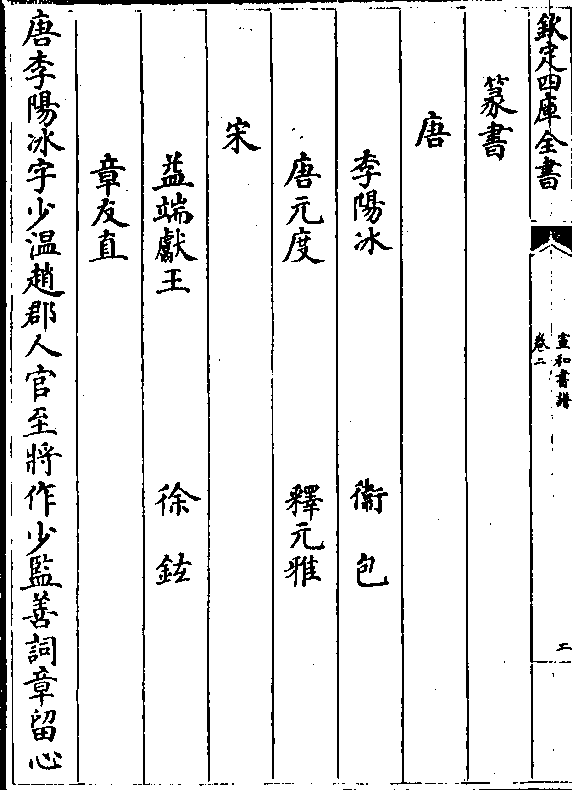 欽定四庫全書
宣和書譜
卷二
二
篆書
唐
李陽冰 衞包
唐元度 釋元雅
宋
益端獻王 徐鉉
章友直
唐李陽冰字少温趙郡人官至將作少監善詞章留心